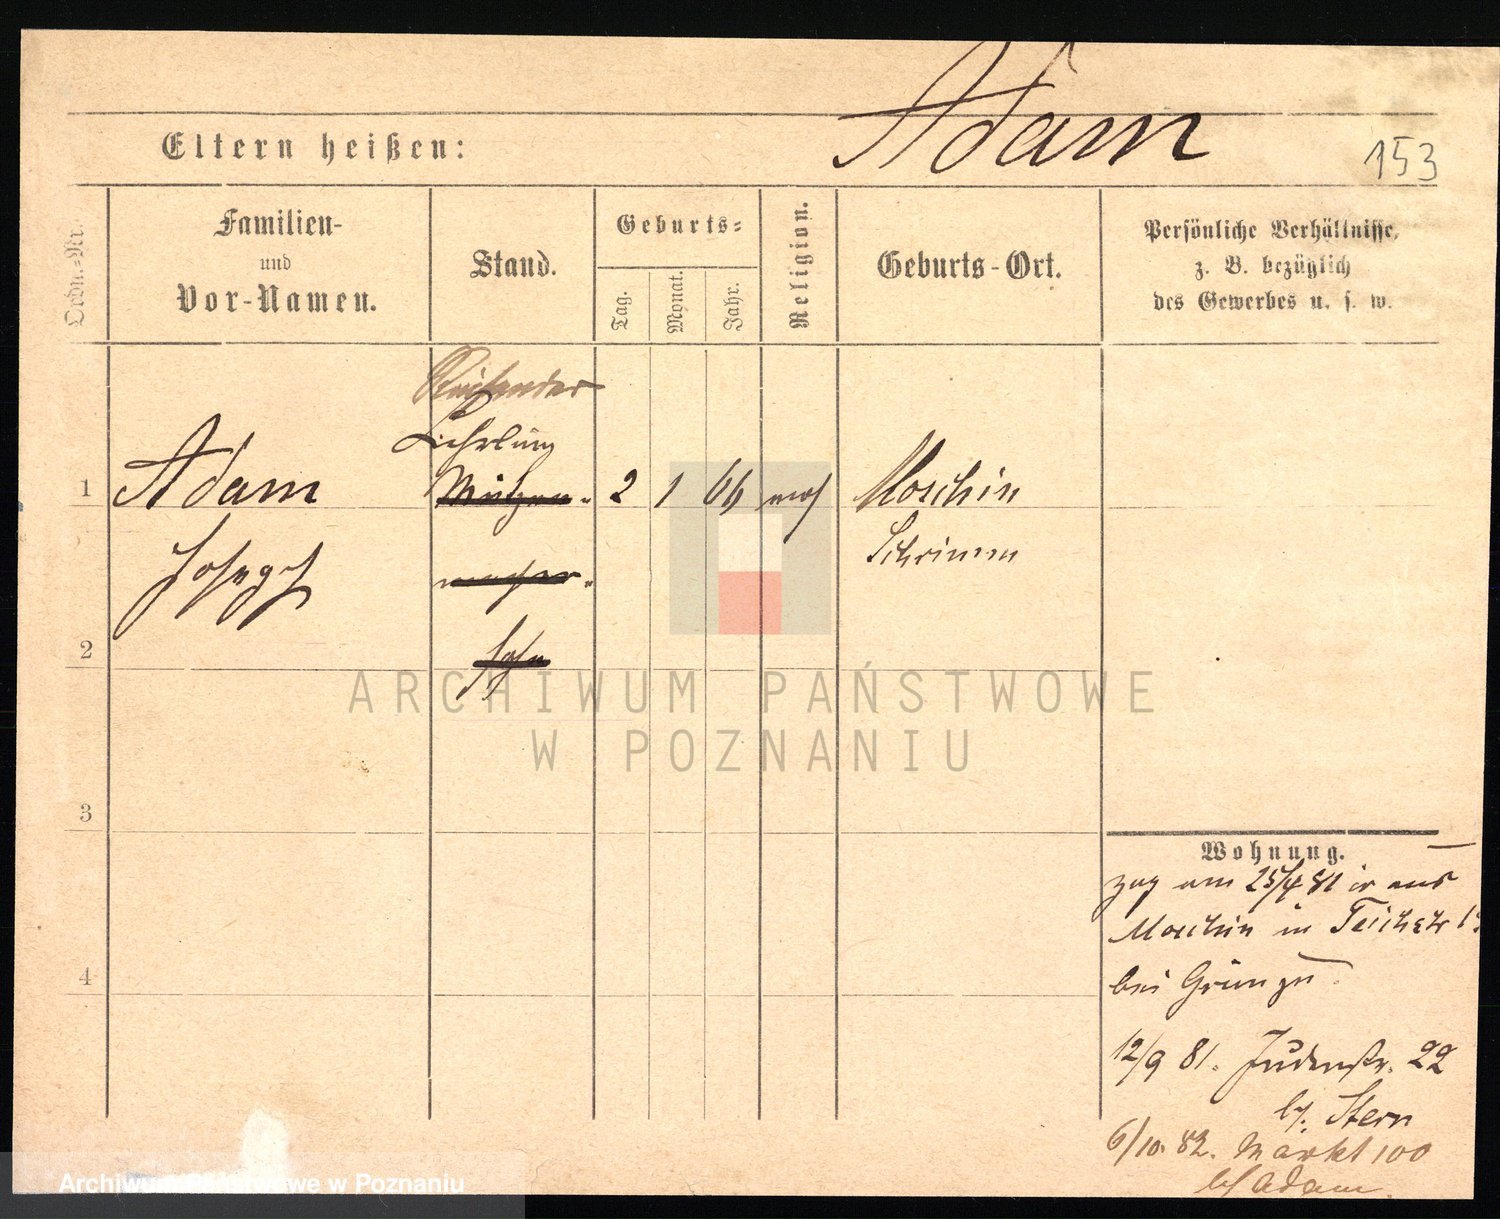 Adam
Eltern heißen:
153
Ordn.-Nr.
Familien-
und
Vor-Namen.
Stand.
Geburts-
Tag.
Monat.
Jahr.
Religion.
Geburts-Ort.
Persönliche Verhältnisse,
z. B. bezüglich
des Gewerbes u. s. w.
Reisender
Lehrling
1 Adam Mützen- 2 1 66 mos Moschin
Joseph macher- Schrimm
2 sohn
ARCHIWUM PAŃSTWOWE
W POZNANIU
3
Wohnung.
zog am 25/4 81 aus
Moschin in Teichstr
4
bei Grün zu
12/9 81. Judenstr. 22
b/. Stern
6/10. 82. Markt 100
b/ Adam.
Archiwum Państwowe w Poznaniu